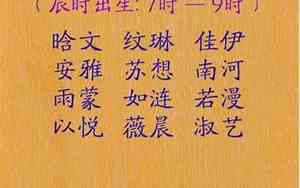 （辰时出生：7时 — 9时）
晗文 纹琳 佳伊
安雅 苏想 南河
雨蒙 如涟 若漫
以悦 薇晨 淑艺